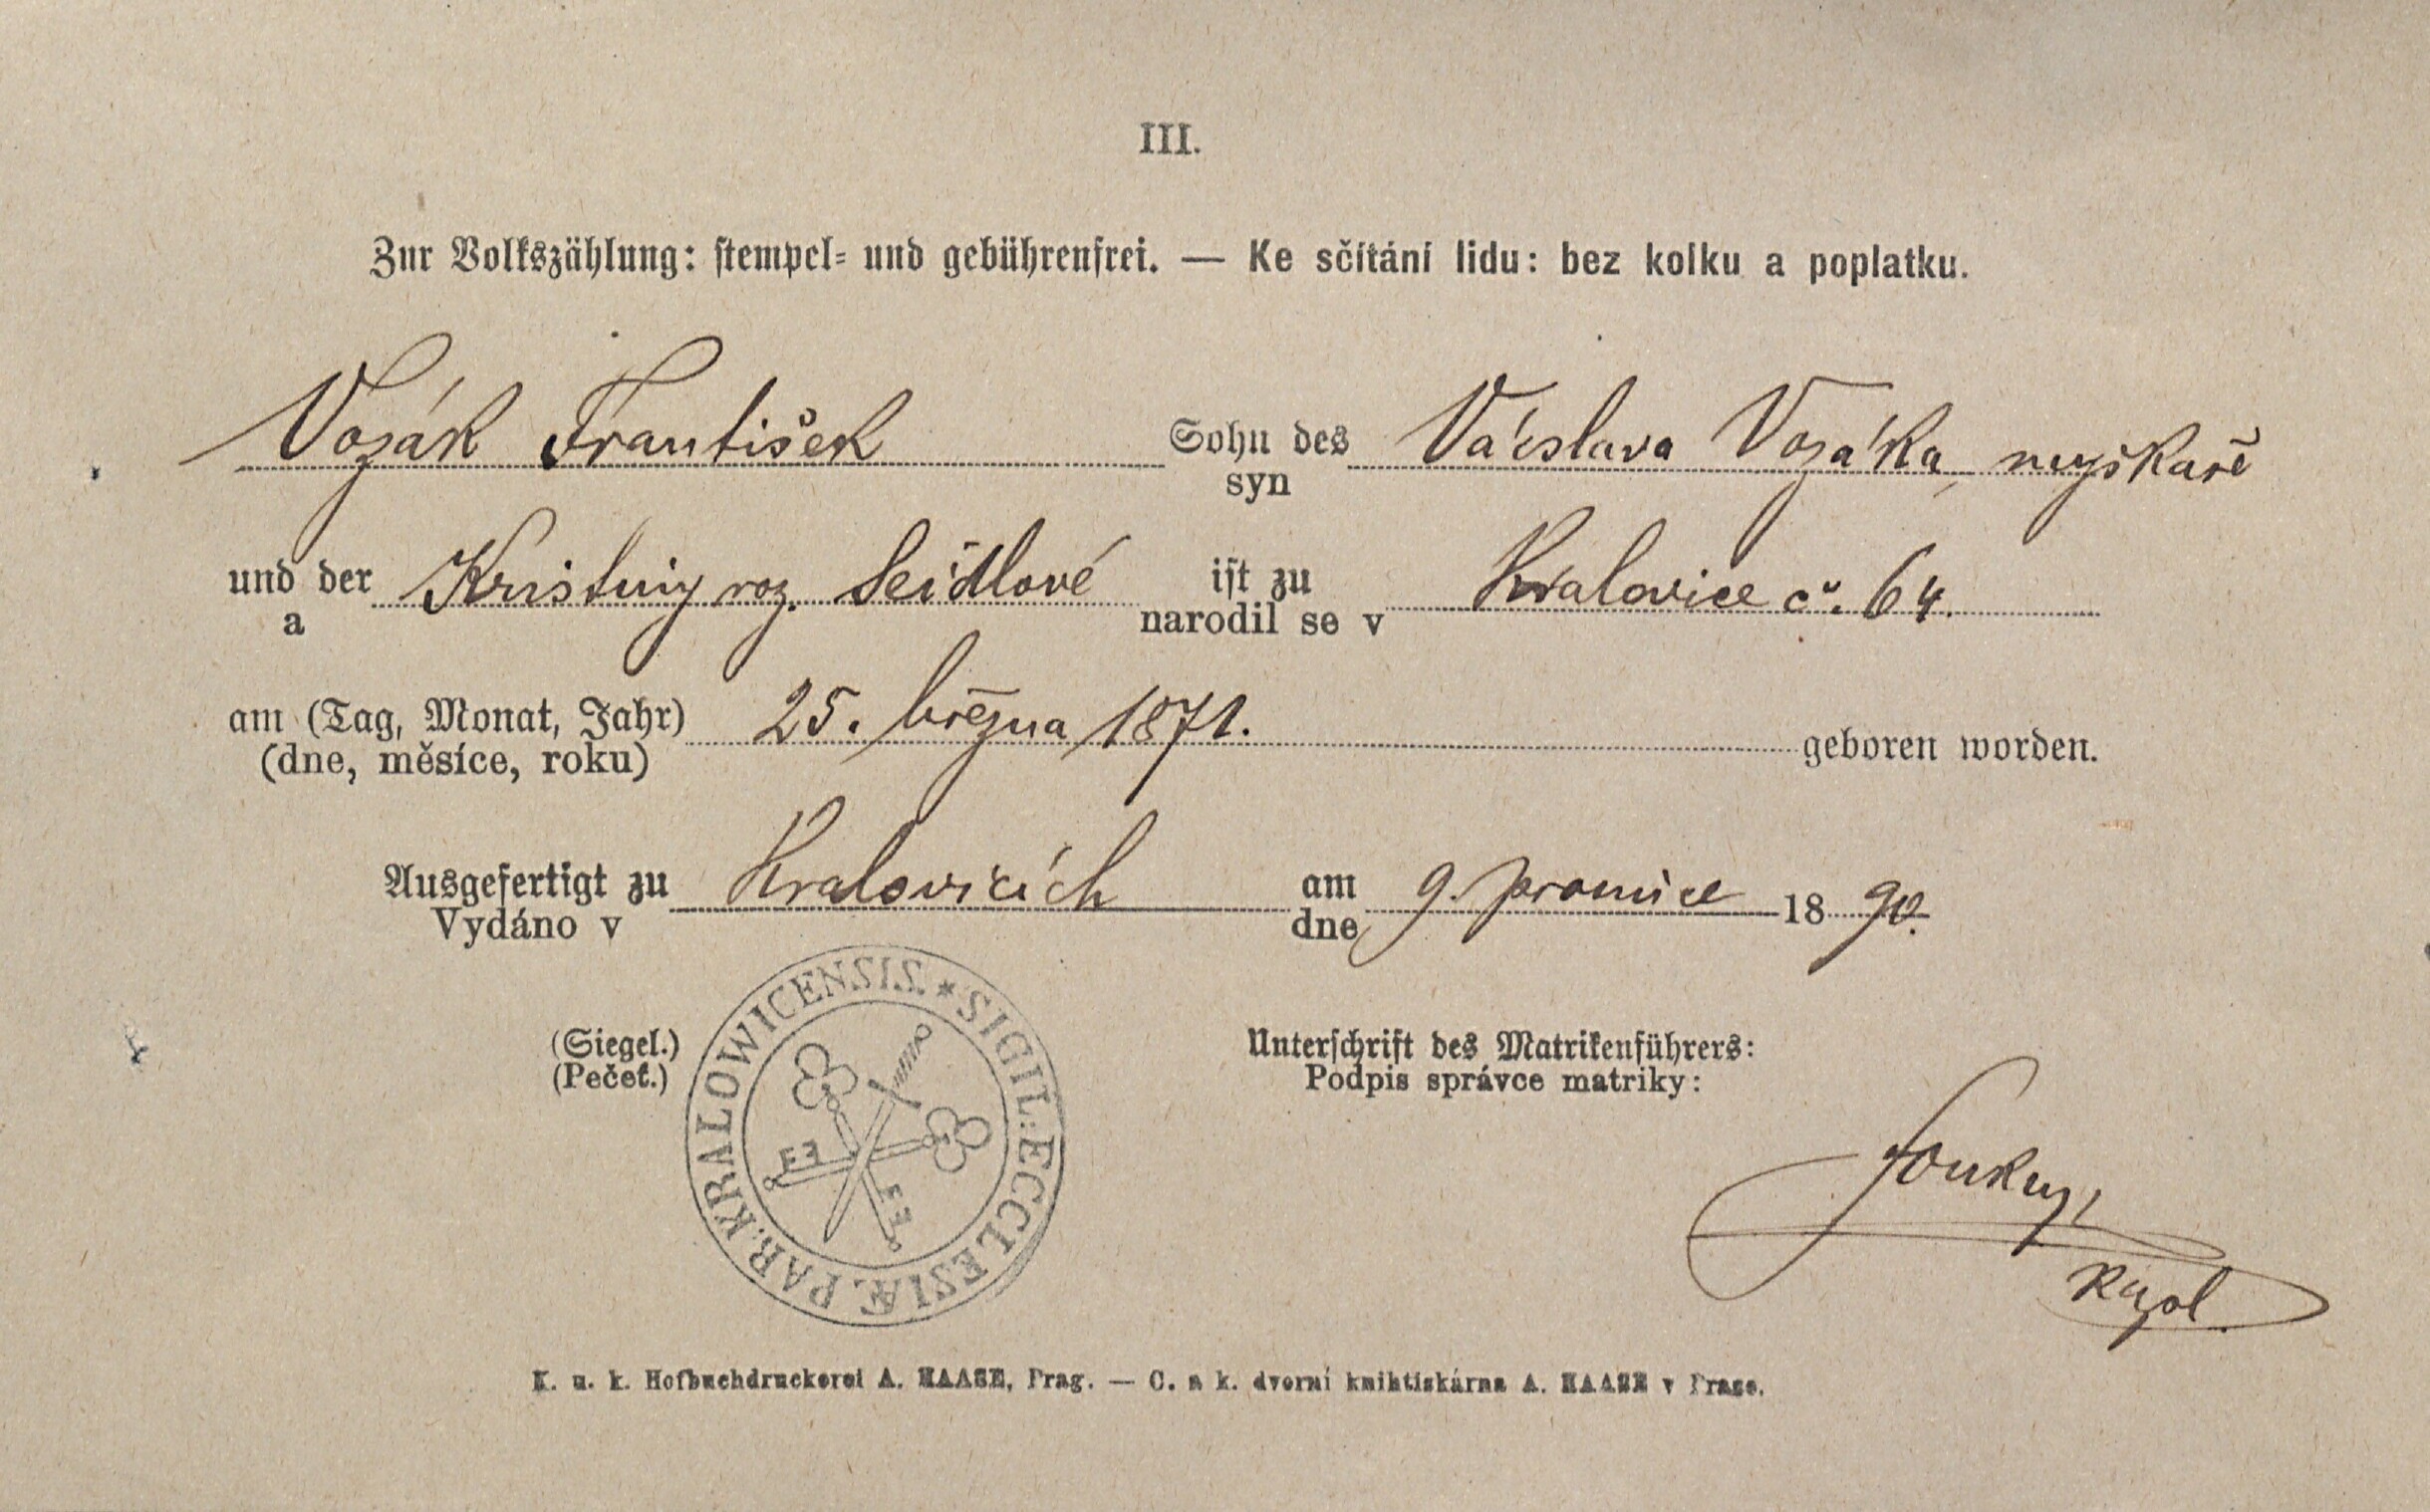 III.
Zur Volkszählung: stempel- und gebührenfrei. — Ke sčítání lidu: bez kolku a poplatku.
Vozák František Sohn des Václava Vozáka,
syn
und der Kristiny roz. Seidlové ist zu Kralovice č. 64.
a narodil se v
am (Tag, Monat, Jahr) 25. března 1871. geboren worden.
(dne, měsíce, roku)
Ausgefertigt zu Kralovicích am 9. prosince 18 90.
Vydáno v dne
(Siegel.) Unterschrift des Matrikenführers:
(Pečeť.) Podpis správce matriky:
SIGIL: ECCLESIÆ PAR: KRALOWICENSIS.
kapl.
K. u. k. Hofbuchdruckerei A. HAASE, Prag. — C. a k. dvorní knihtiskárna A. HAASE v Praze.